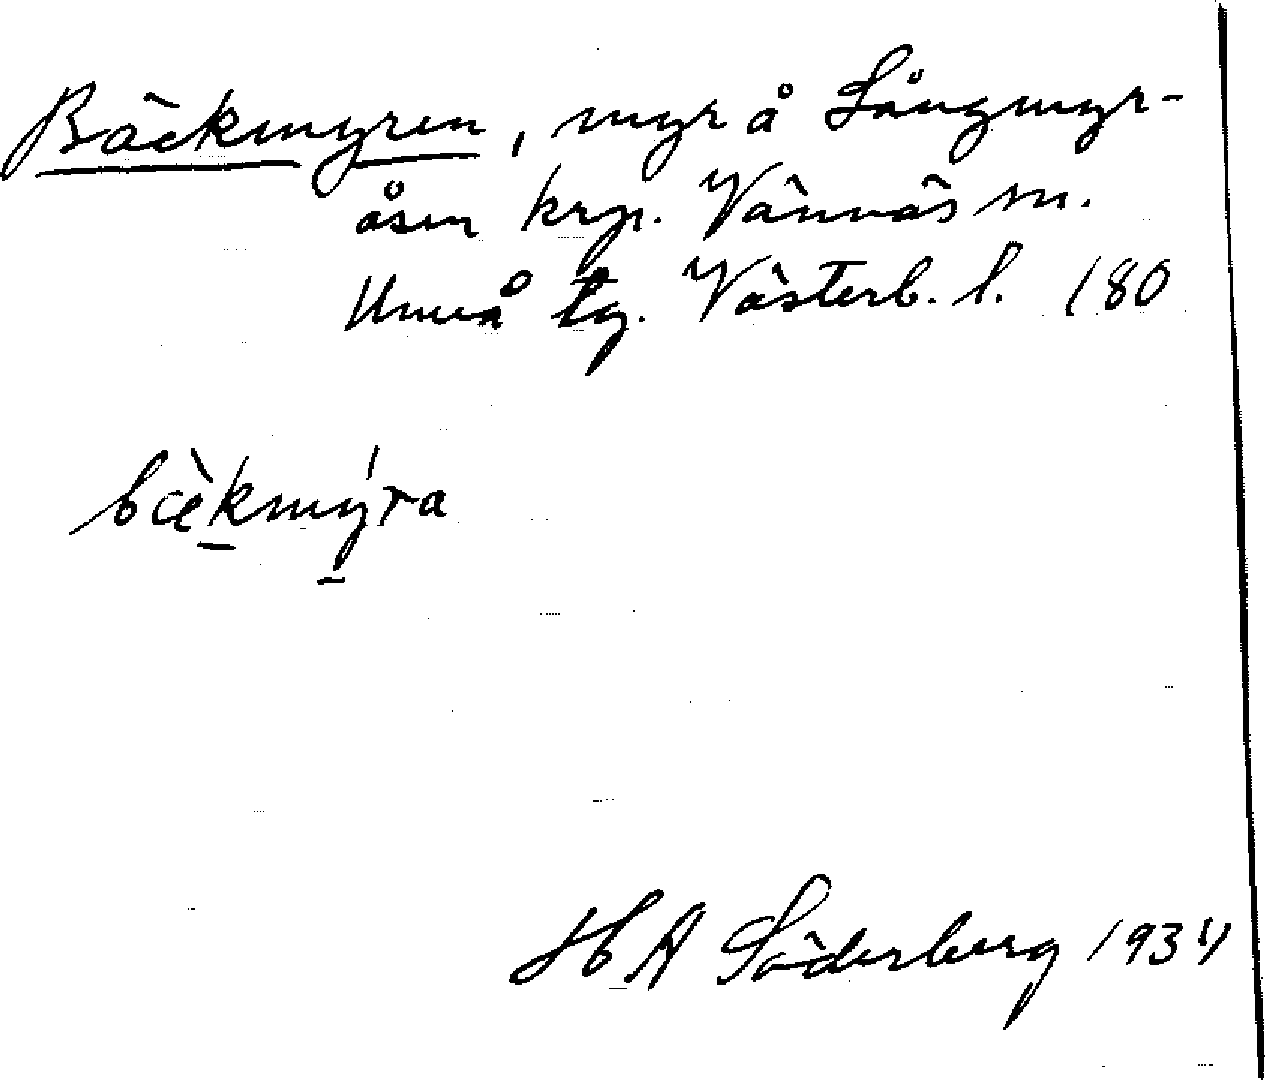 Bäckmyren, myr å Långmyr-
åsen krp. Vännäs sn.
Umeå tg. Västerb. l. 180
bæ̀kmýra
H A Söderberg 1934